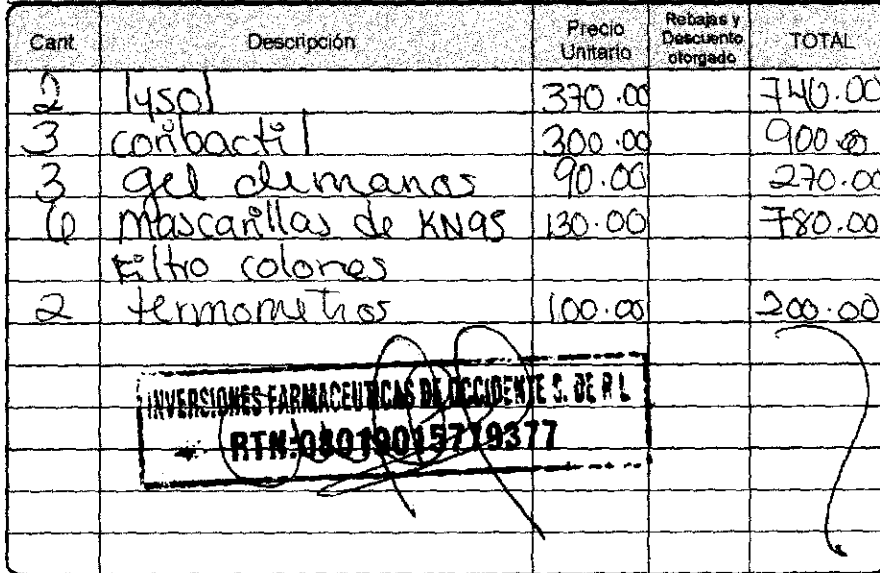 Cant. Descripción Precio Unitario Rebajas y Descuento otorgado TOTAL
2 lysol 370.00 740.00
3 conbactil 300.00 900.00
3 gel de manos 90.00 270.00
6 mascarillas de KN95 130.00 780.00
Filtro colores
2 termometros 100.00 200.00
INVERSIONES FARMACEUTICAS DE OCCIDENTE S. DE R L
RTN:08019015719377